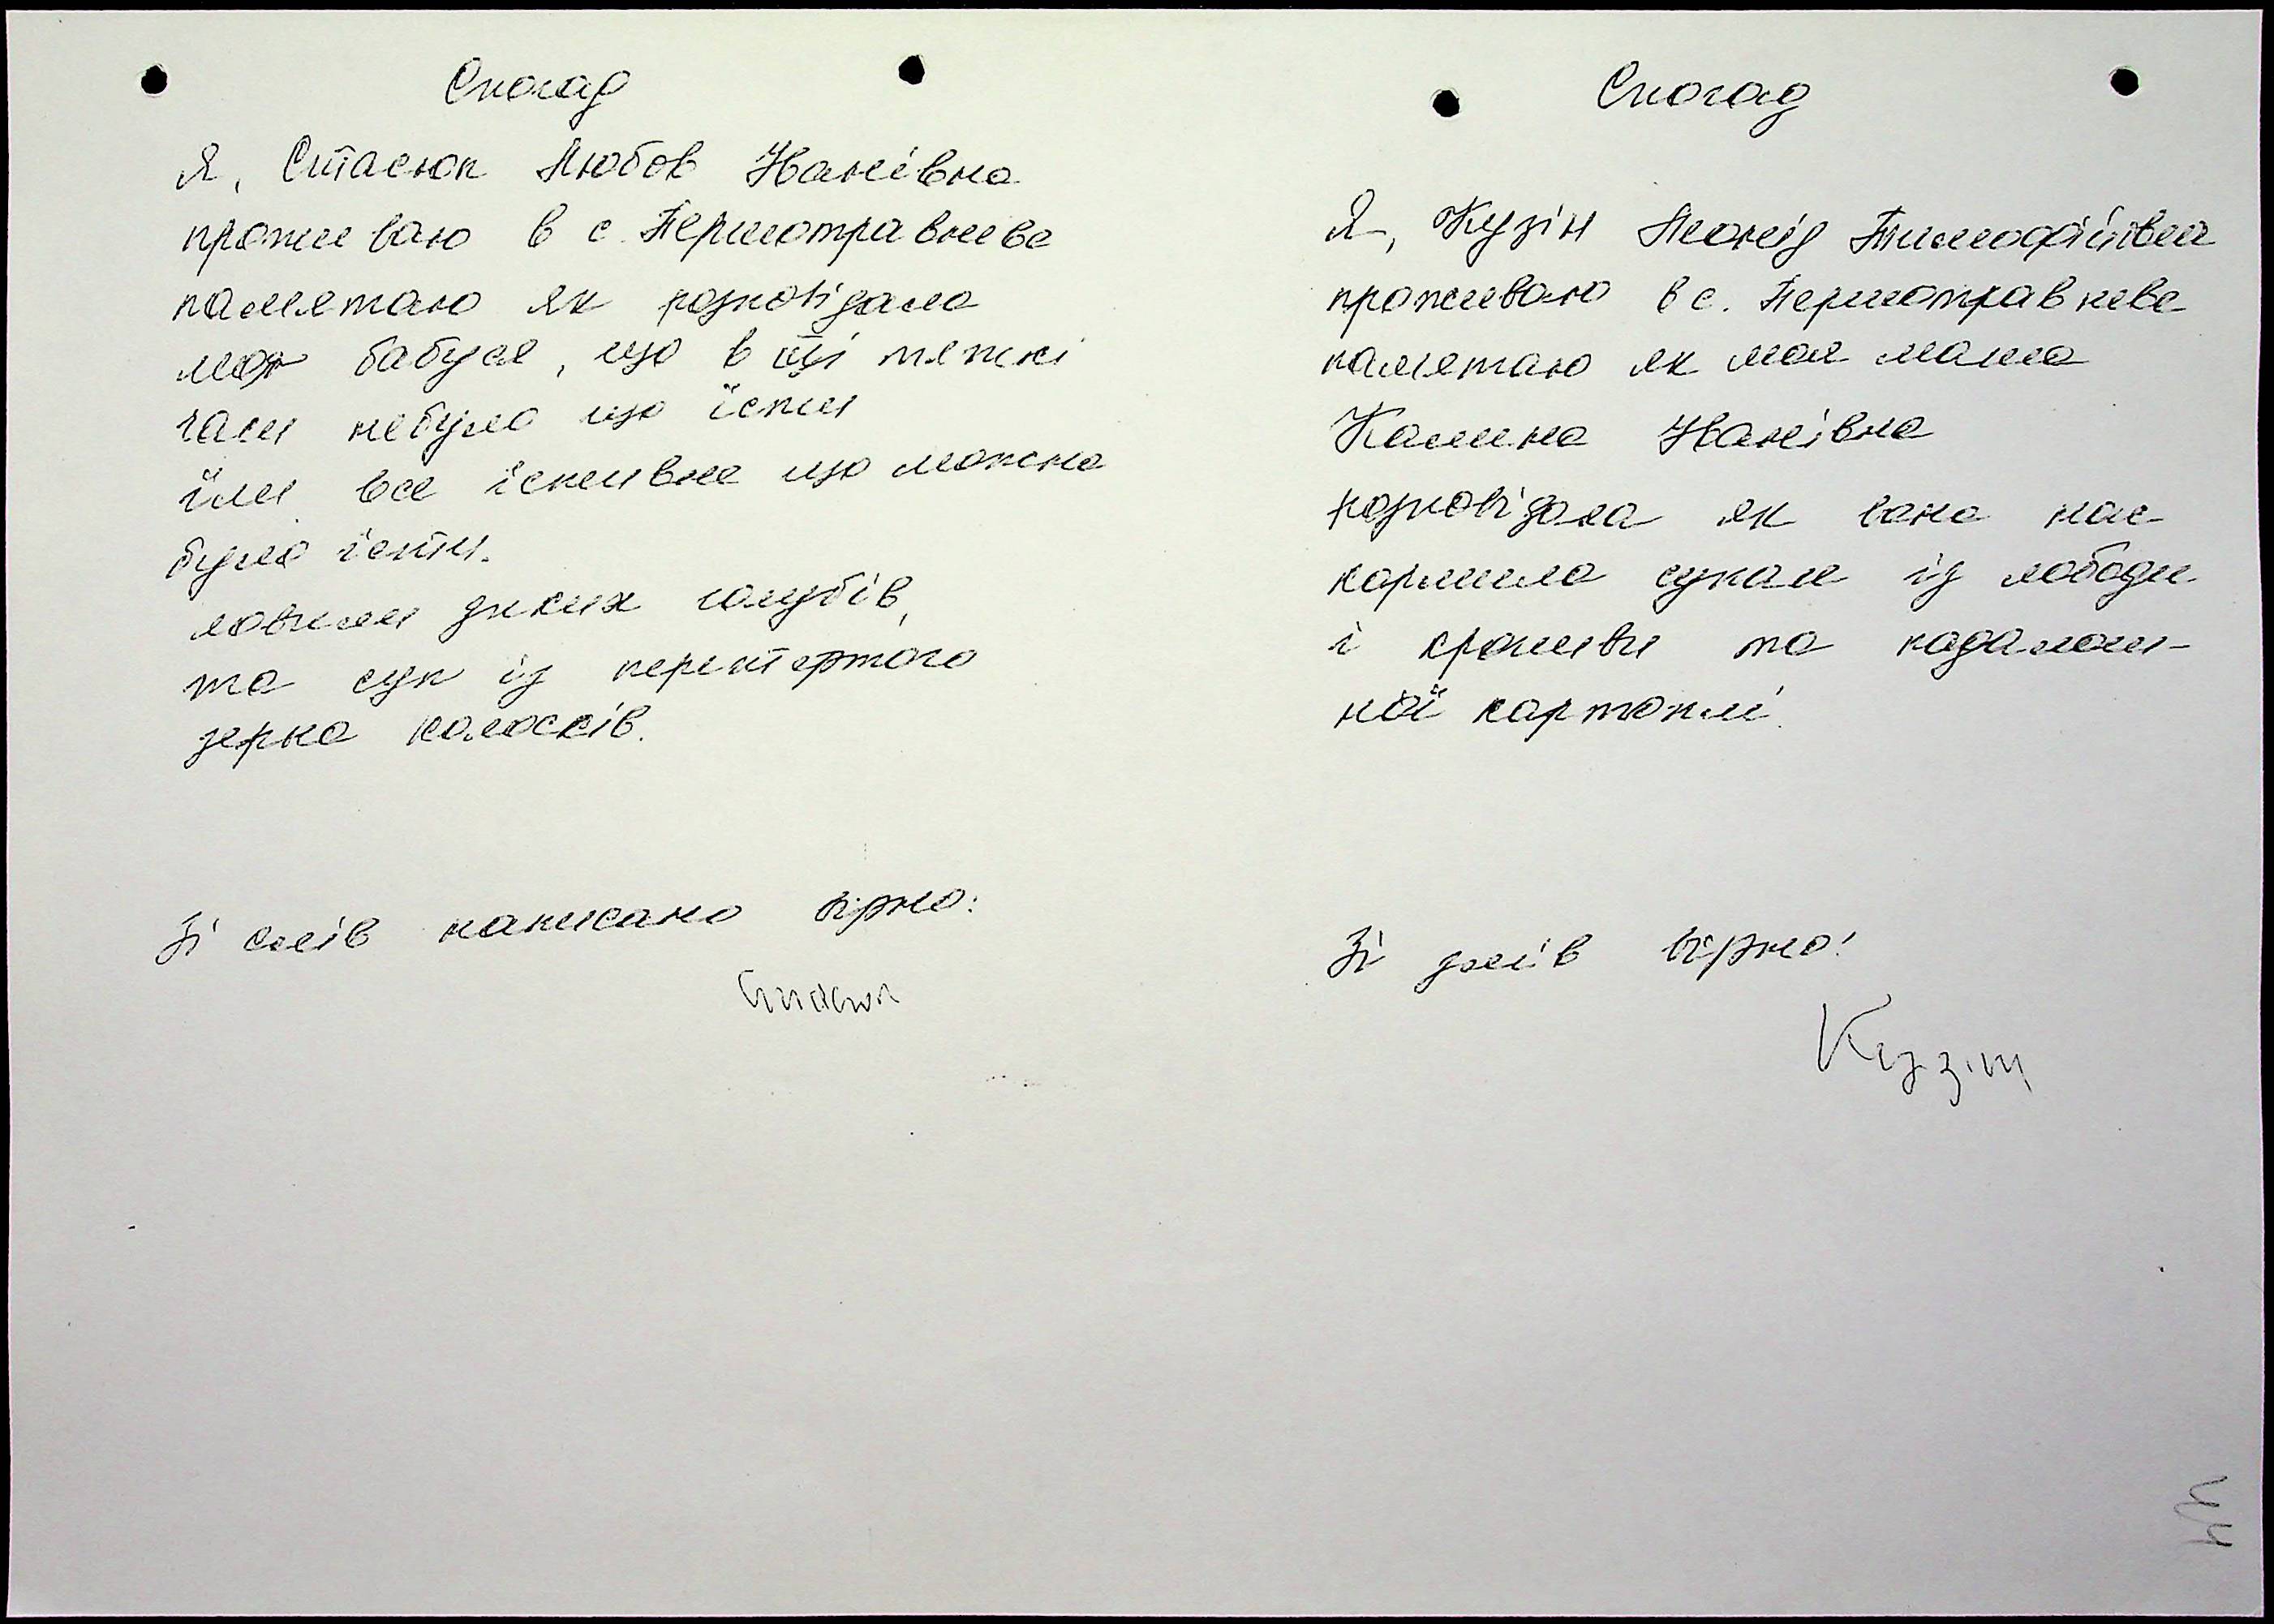 Спогад
Я, Стасюк Любов Іванівна
проживаю в с. Першотравневе
памятаю як розповідала
моя бабуся, що в ці тяжкі
часи небуло що їсти
їли все їстивне що можна
було їсти.
ловили диких голубів,
та суп із перетертого
зерна колосків.
Зі слів написано вірно:
Стасюк
Спогад
Я, Кузін Леонід Тимофійович
проживаю в с. Першотравневе
памятаю як моя мама
Калина Іванівна
розповідала як вона нас
кормила супам із лободи
і кропиви та
картоплі.
Зі слів вірно!
Кузін